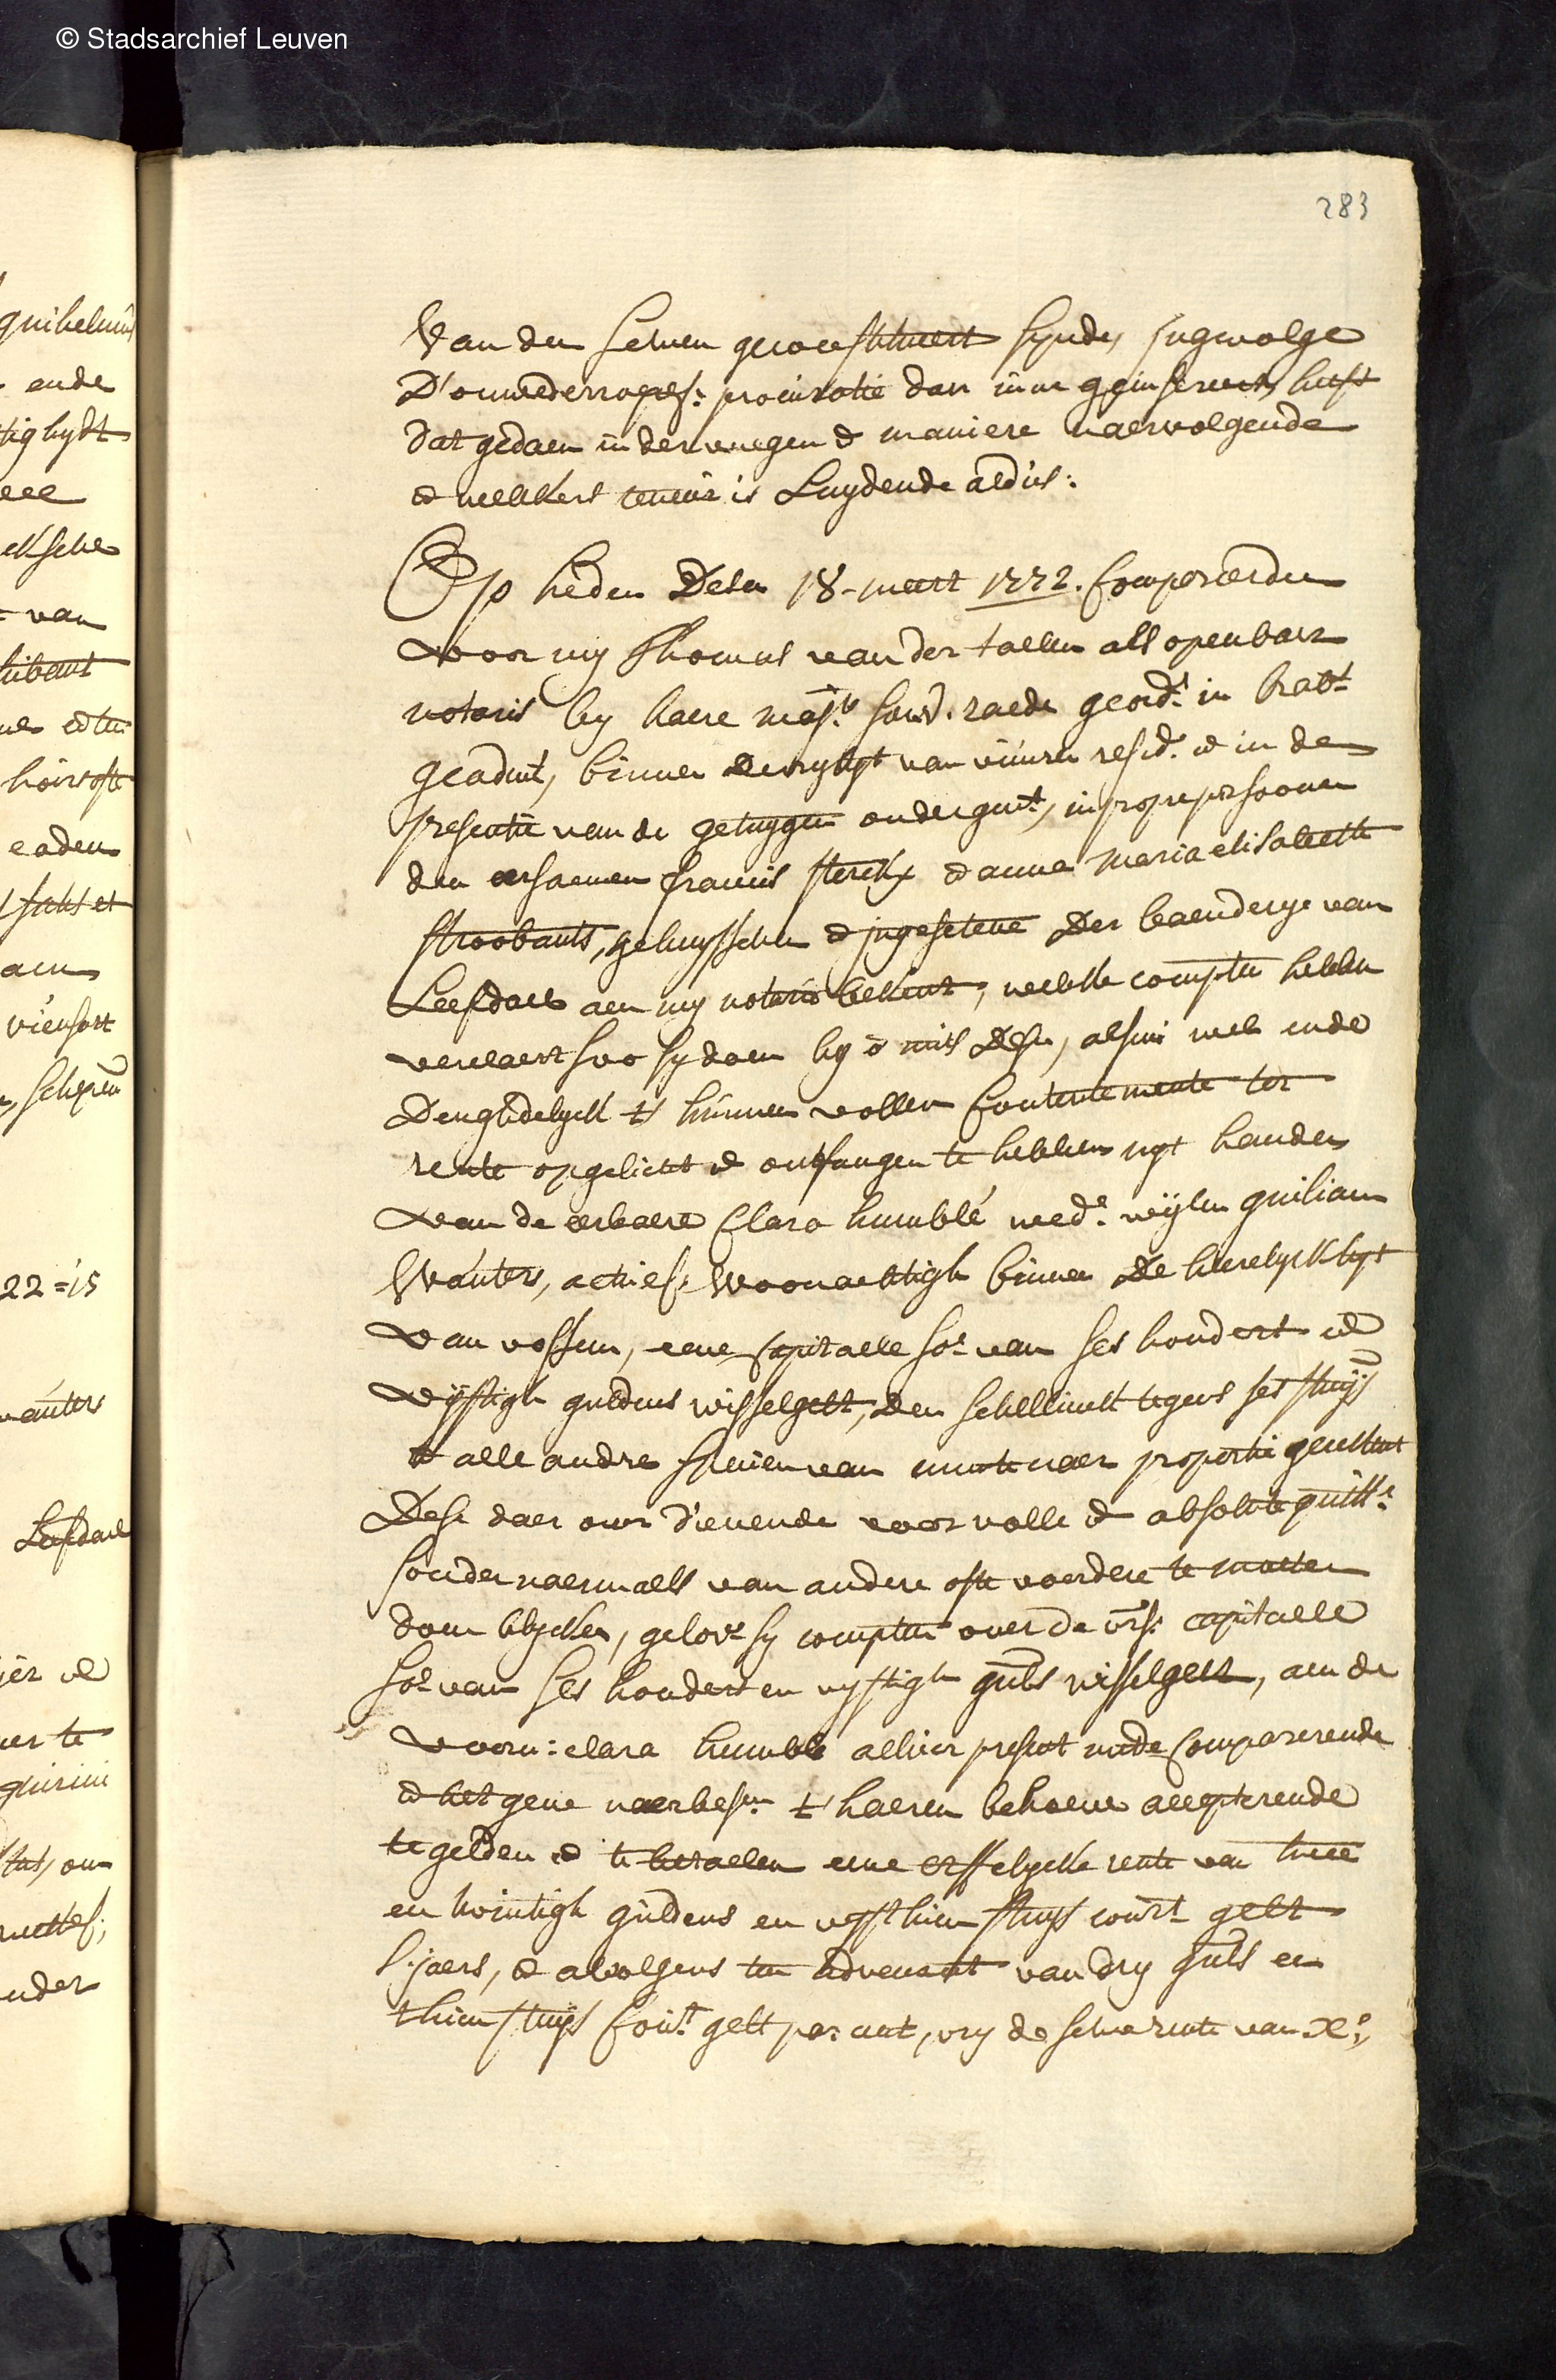 © Stadsarchief Leuven
283
Van den selven geconstitueert synde, ingevolge
D'onwederroepel: procuratie daer inne geinsereert, heeft
dat gedaen in der vuegen & maniere naervolgende
& welckers teneur is Luydende aldus:
Op heden Desen 18 meert 1772. Compareerden
voor my Thomas van der taelen als openbaer
notaris by haere maj:ts souv. raede geord:t in brab:t
geadmt, binnen de vryhyt van vueren resid: & in de
presentie van de getuygen ondergent, in proper persoonen
den eersaemen francis sterckx & anna maria elisabeth
stroobants, gehuysschen & ingesetene der baenderye van
Leefdael aen my notaris bekent, welcke compten hebben
verclaert soo sy doen by & mits Dese, alsnu wel ende
Deughdelyck tot hunnen vollen Contentemente ter
rente opgelicht & ontfangen te hebben uyt handen
van de eerbaere Clara humblé wed:e wijlen guiliam
Wauters, actuel: Woonachtigh binnen de heerelyckhyt
van vossem, eene Capitaele so:e van ses hondert &
vyftigh guldens wisselgelt, den schellinck tegens ses stuys
& alle andre specien van munte naer proportie gerekent
Dese daer over dienende voor volle & absolute quitt:e
sonder naermaels van andere ofte voordere te moeten
doen blycken, gelov: sy compten over de vrs: capitaele
so:e van ses hondert en vyftigh guls wisselgelt, aen de
voorn: clara humble alhier present mede Comparerende
& het gene naerbes: t'haeren behoeve accepterende
te gelden & te betaelen eene erffelycke rente van twee
en twintigh guldens en vyfthien stuys cour:t gelt
s'jaers, & alvolgens ten advenant van dry guls en
thien stuys Cour:t gelt per cent, vry de selve rente van xe,
ende
van
22=15
wauters
Leefdael